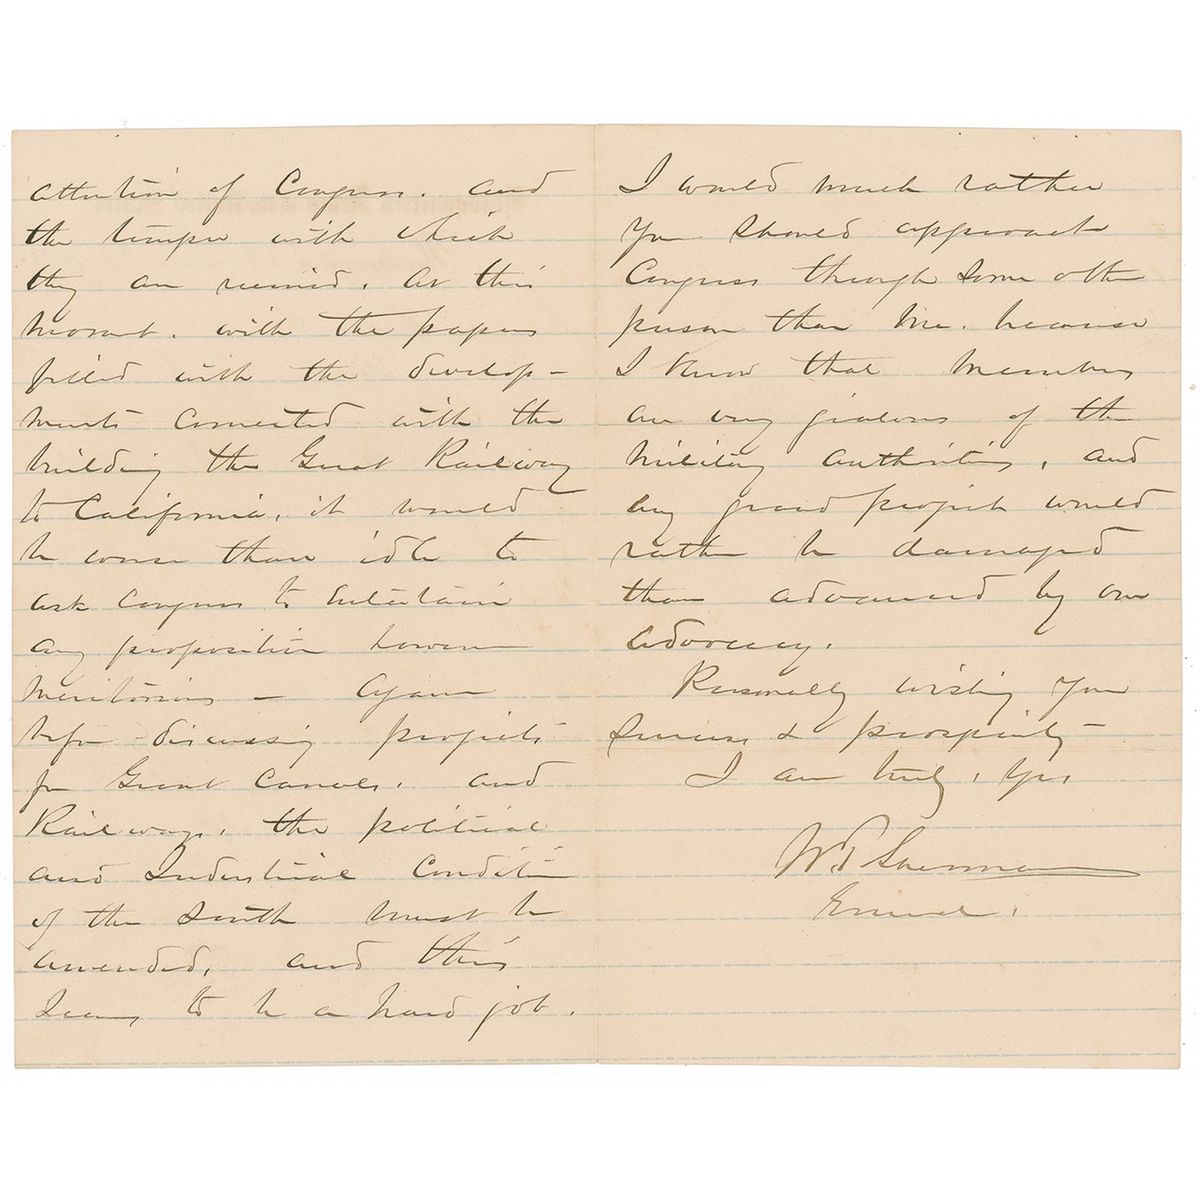 attention of Congress. and
the temper with which
they are received. At this
moment. with the papers
filled with the develop-
ments connected with the
building the Great Railway
to California, it would
be worse than idle to
ask Congress to entertain
any proposition however
meritorious - Again
before discussing projects
for Great Canals, and
Railways, the political
and Industrial Condition
of the South must be
amended, and this
seems to be a hard job.
I would much rather
you should approach
Congress through some other
person than me. because
I know that members
are very jealous of the
military authorities, and
any grand project would
rather be damaged
than advanced by our
advocacy.
Personally wishing you
success & prosperity
I am truly, Yrs,
W T Sherman